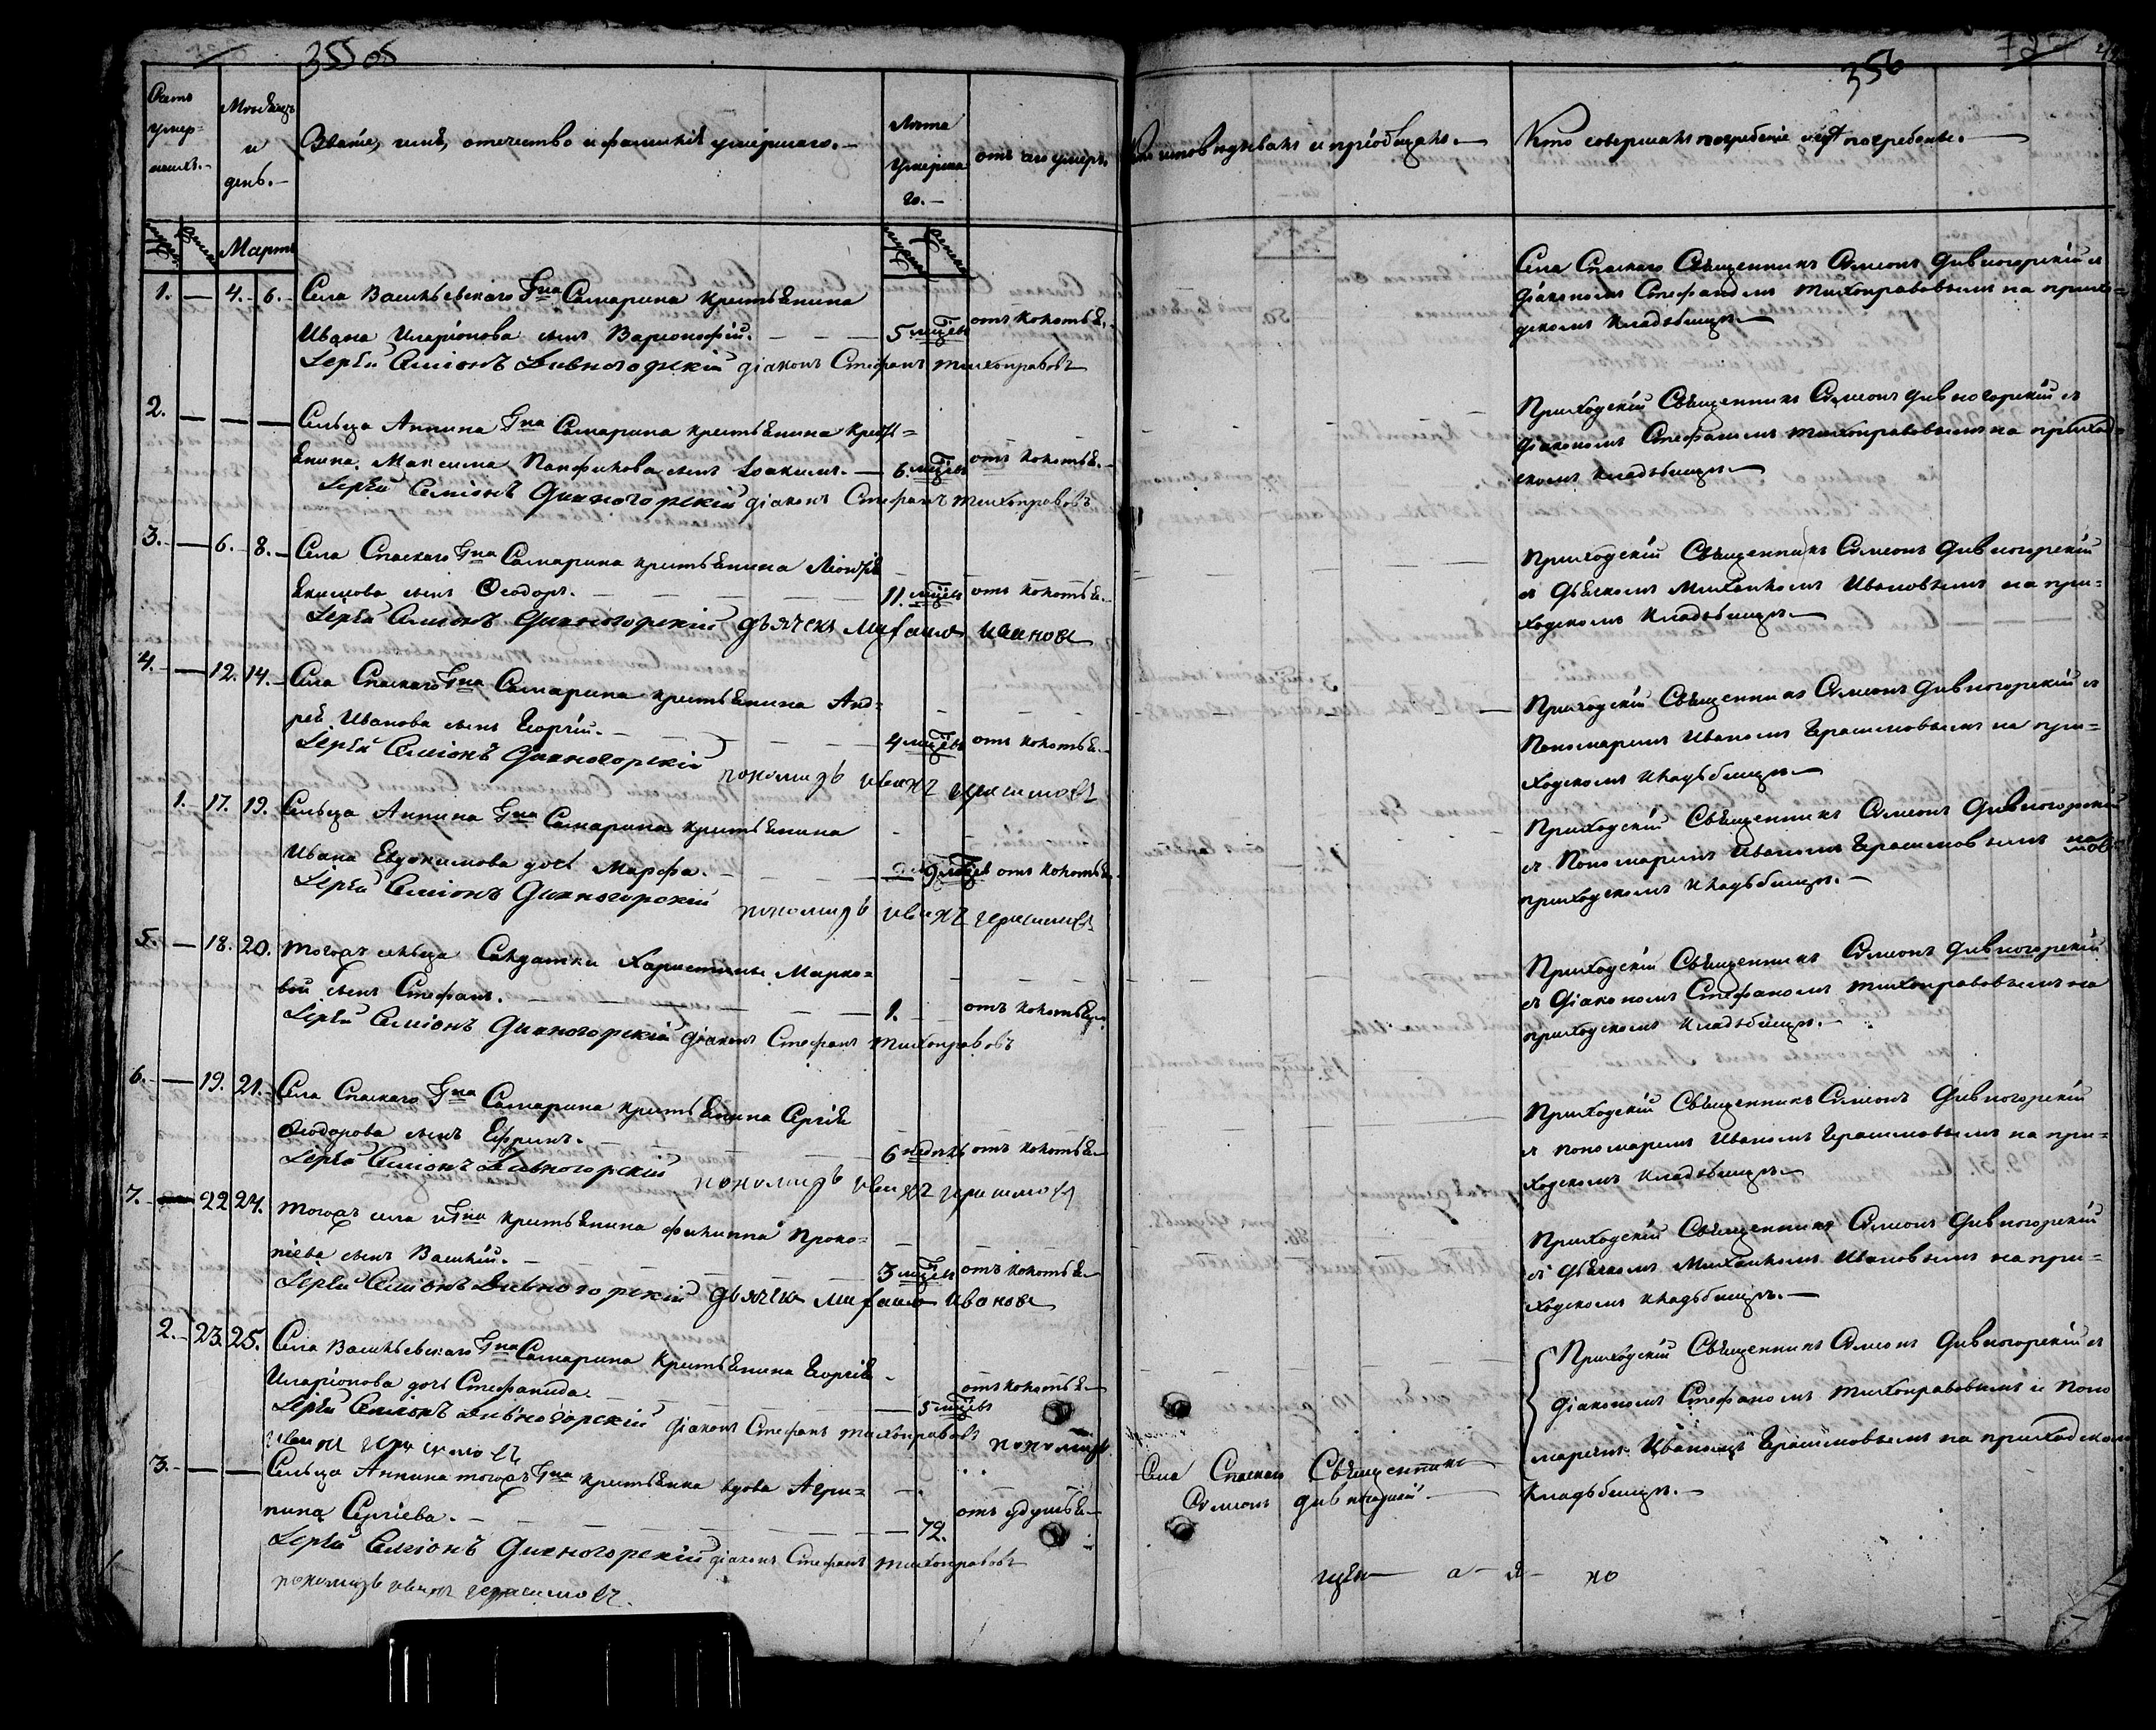 355 об
356
Счетъ умер- шихъ.
Мѣсяцъ и день.
Званіе, имя, отечество и фамилія умершаго.
Лѣта умерша- го.
отъ чего умеръ.
Кто исповѣдывалъ и пріобщалъ.
Кто совершалъ погребеніе и гдѣ погребены.
Мартъ
1. — 4. 6. Села Васильевскаго Гна Самарина крестьянина
Ивана Иларіонова сынъ Варѳоломѣй. 5 мцевъ отъ кокотья.
Іерей Симіонъ Дивногорскій діаконъ Стефанъ Тихонравовъ
Села Спаскаго Священникъ Симеонъ Дивногорскій съ
діакономъ Стефаномъ Тихонравовымъ на прихо-
дскомъ кладбищѣ.
2. — — — Сельца Аннина Гна Самарина крестьянина кресть-
янина Максима Панфилова сынъ Іоакимъ. — 6. мцевъ отъ кокотья.
Іерей Симіонъ Дивногорскій діаконъ Стефанъ Тихонравовъ
Приходскій Священникъ Симеонъ Дивногорскій съ
діакономъ Стефаномъ Тихонравовымъ на приход-
скомъ кладбищѣ.
3. — 6. 8. Села Спаскаго Гна Самарина крестьянина
Екимова сынъ Ѳеодоръ. 11. мцевъ отъ кокотья.
Іерей Симіонъ Дивногорскій дьячекъ Михаилъ Ивановъ
Приходскій Священникъ Симеонъ Дивногорскій
съ дьячкомъ Михаиломъ Ивановымъ на при-
ходскомъ кладбищѣ.
4. — 12. 14. Села Спаскаго Гна Самарина крестьянина Анд-
рея Иванова сынъ Георгій. 4 мцевъ отъ кокотья.
Іерей Симіонъ Дивногорскій пономарь Иванъ Герасимовъ
Приходскій Священникъ Симеонъ Дивногорскій съ
Пономаремъ Иваномъ Герасимовымъ на при-
ходскомъ кладбищѣ.
1. 17. 19. Сельца Аннина Гна Самарина крестьянина
Ивана Евдокимова дочь Марфа. 9 мцевъ отъ кокотья.
Іерей Симіонъ Дивногорскій пономарь Иванъ Герасимовъ
Приходскій Священникъ Симеонъ Дивногорскій
съ Пономаремъ Иваномъ Герасимовымъ на
приходскомъ кладбищѣ.
5. — 18. 20. Тогожъ сельца Солдатки Харистины Марко-
вой сынъ Стефанъ. 1. отъ кокотья.
Іерей Симіонъ Дивногорскій діаконъ Стефанъ Тихонравовъ
Приходскій Священникъ Симеонъ Дивногорскій
съ діакономъ Стефаномъ Тихонравовымъ на
приходскомъ кладбищѣ.
6. — 19. 21. Села Спаскаго Гна Самарина крестьянина Сергія
Ѳеодорова сынъ Ефремъ. 6 недѣль отъ кокотья
Іерей Симіонъ Дивногорскій пономарь Иванъ Герасимовъ
Приходскій Священникъ Симеонъ Дивногорскій
съ пономаремъ Иваномъ Герасимовымъ на при-
ходскомъ кладбищѣ.
7. — 22 24. Тогожъ села и Гна крестьянина Филиппа Проко-
піева сынъ Василій. 3 мцевъ отъ кокотья
Іерей Симіонъ Дивногорскій дьячекъ Михаилъ Ивановъ
Приходскій Священникъ Симеонъ Дивногорскій
съ дьячкомъ Михаиломъ Ивановымъ на при-
ходскомъ кладбищѣ.
2. 23. 25. Села Васильевскаго Гна Самарина крестьянина Георгія
Иларіонова дочь Стефанида. 5 мцевъ отъ кокотья
Іерей Симіонъ Дивногорскій діаконъ Стефанъ Тихонравовъ пономарь
Иванъ Герасимовъ
Приходскій Священникъ Симеонъ Дивногорскій съ
діакономъ Стефаномъ Тихонравовымъ и поно
маремъ Иваномъ Герасимовымъ на приходскомъ
кладбищѣ.
3. — — Сельца Аннина тогожъ Гна крестьянка вдова Агри-
пина Сергіева. 72. отъ удушья
Іерей Симіонъ Дивногорскій діаконъ Стефанъ Тихонравовъ
пономарь Иванъ Герасимовъ.
Села Спаскаго Священникъ
Симеонъ Дивногорскій.